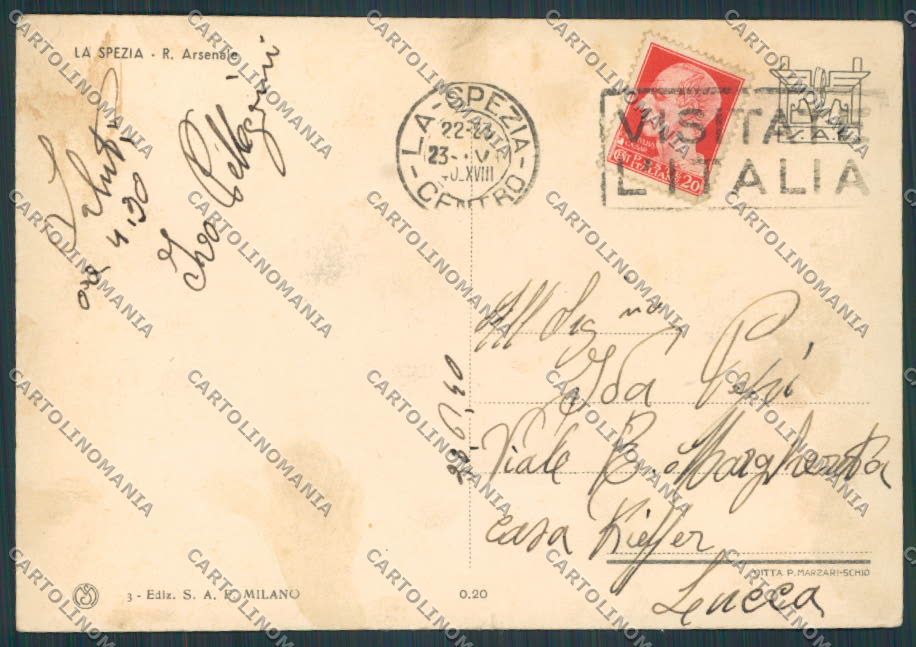 LA SPEZIA - R. Arsenale
Saluti
ore 4,30
Ivo Pellegrini
LA-SPEZIA-
22-23
23-
40.XVIII
CENTRO
VISITATE
L'ITALIA
POSTE ITALIANE
CENT. 20
All Sig.na
Ida
Viale R. Margherita
casa Kieffer
Lucca
DITTA P. MARZARI-SCHIO
3 - Ediz. S. A. F. MILANO
0.20
CARTOLINOMANIA